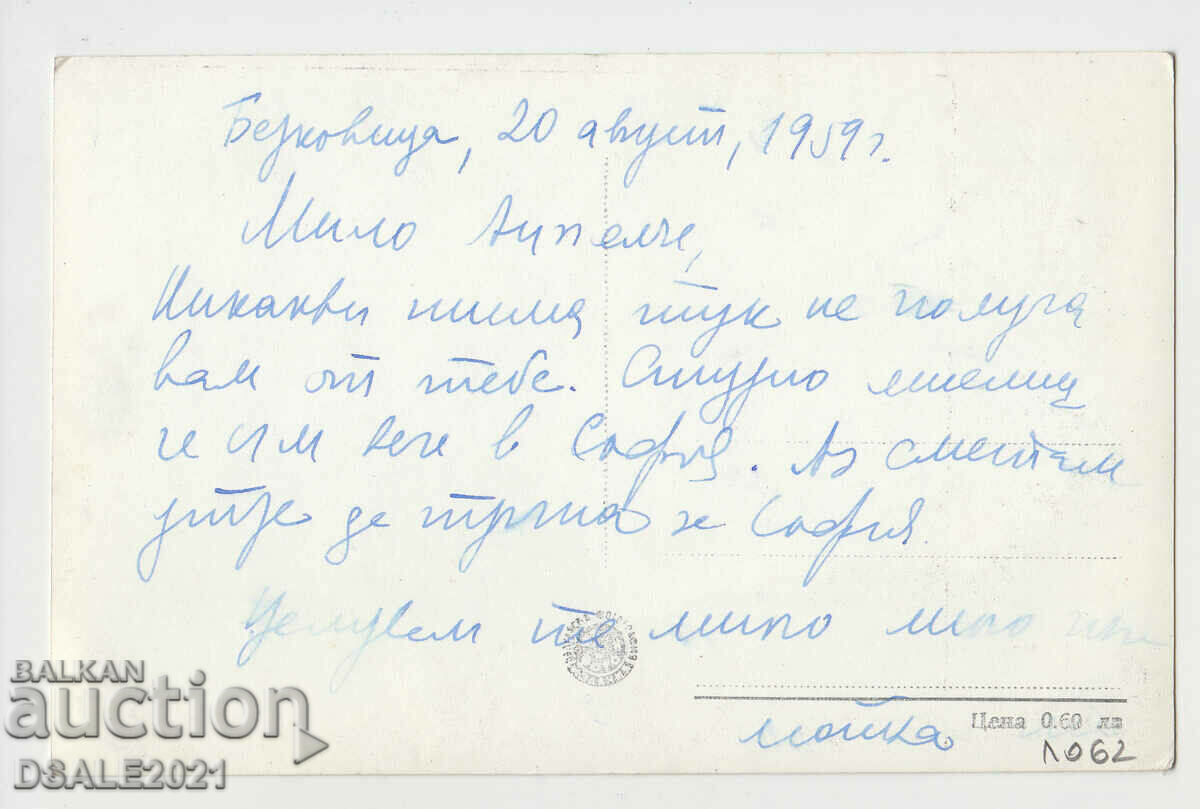 Берковица, 20 август, 1959 г.
Мило Ангелче,
Никакви писма тук не получа
вам от тебе. Сигурно мислиш
че съм вече в София. Аз сметам
утре да тръгна за София.
Целувам те много много
майка
Цена 0.60 лв
1062
BALKAN
auction
DSALE2021